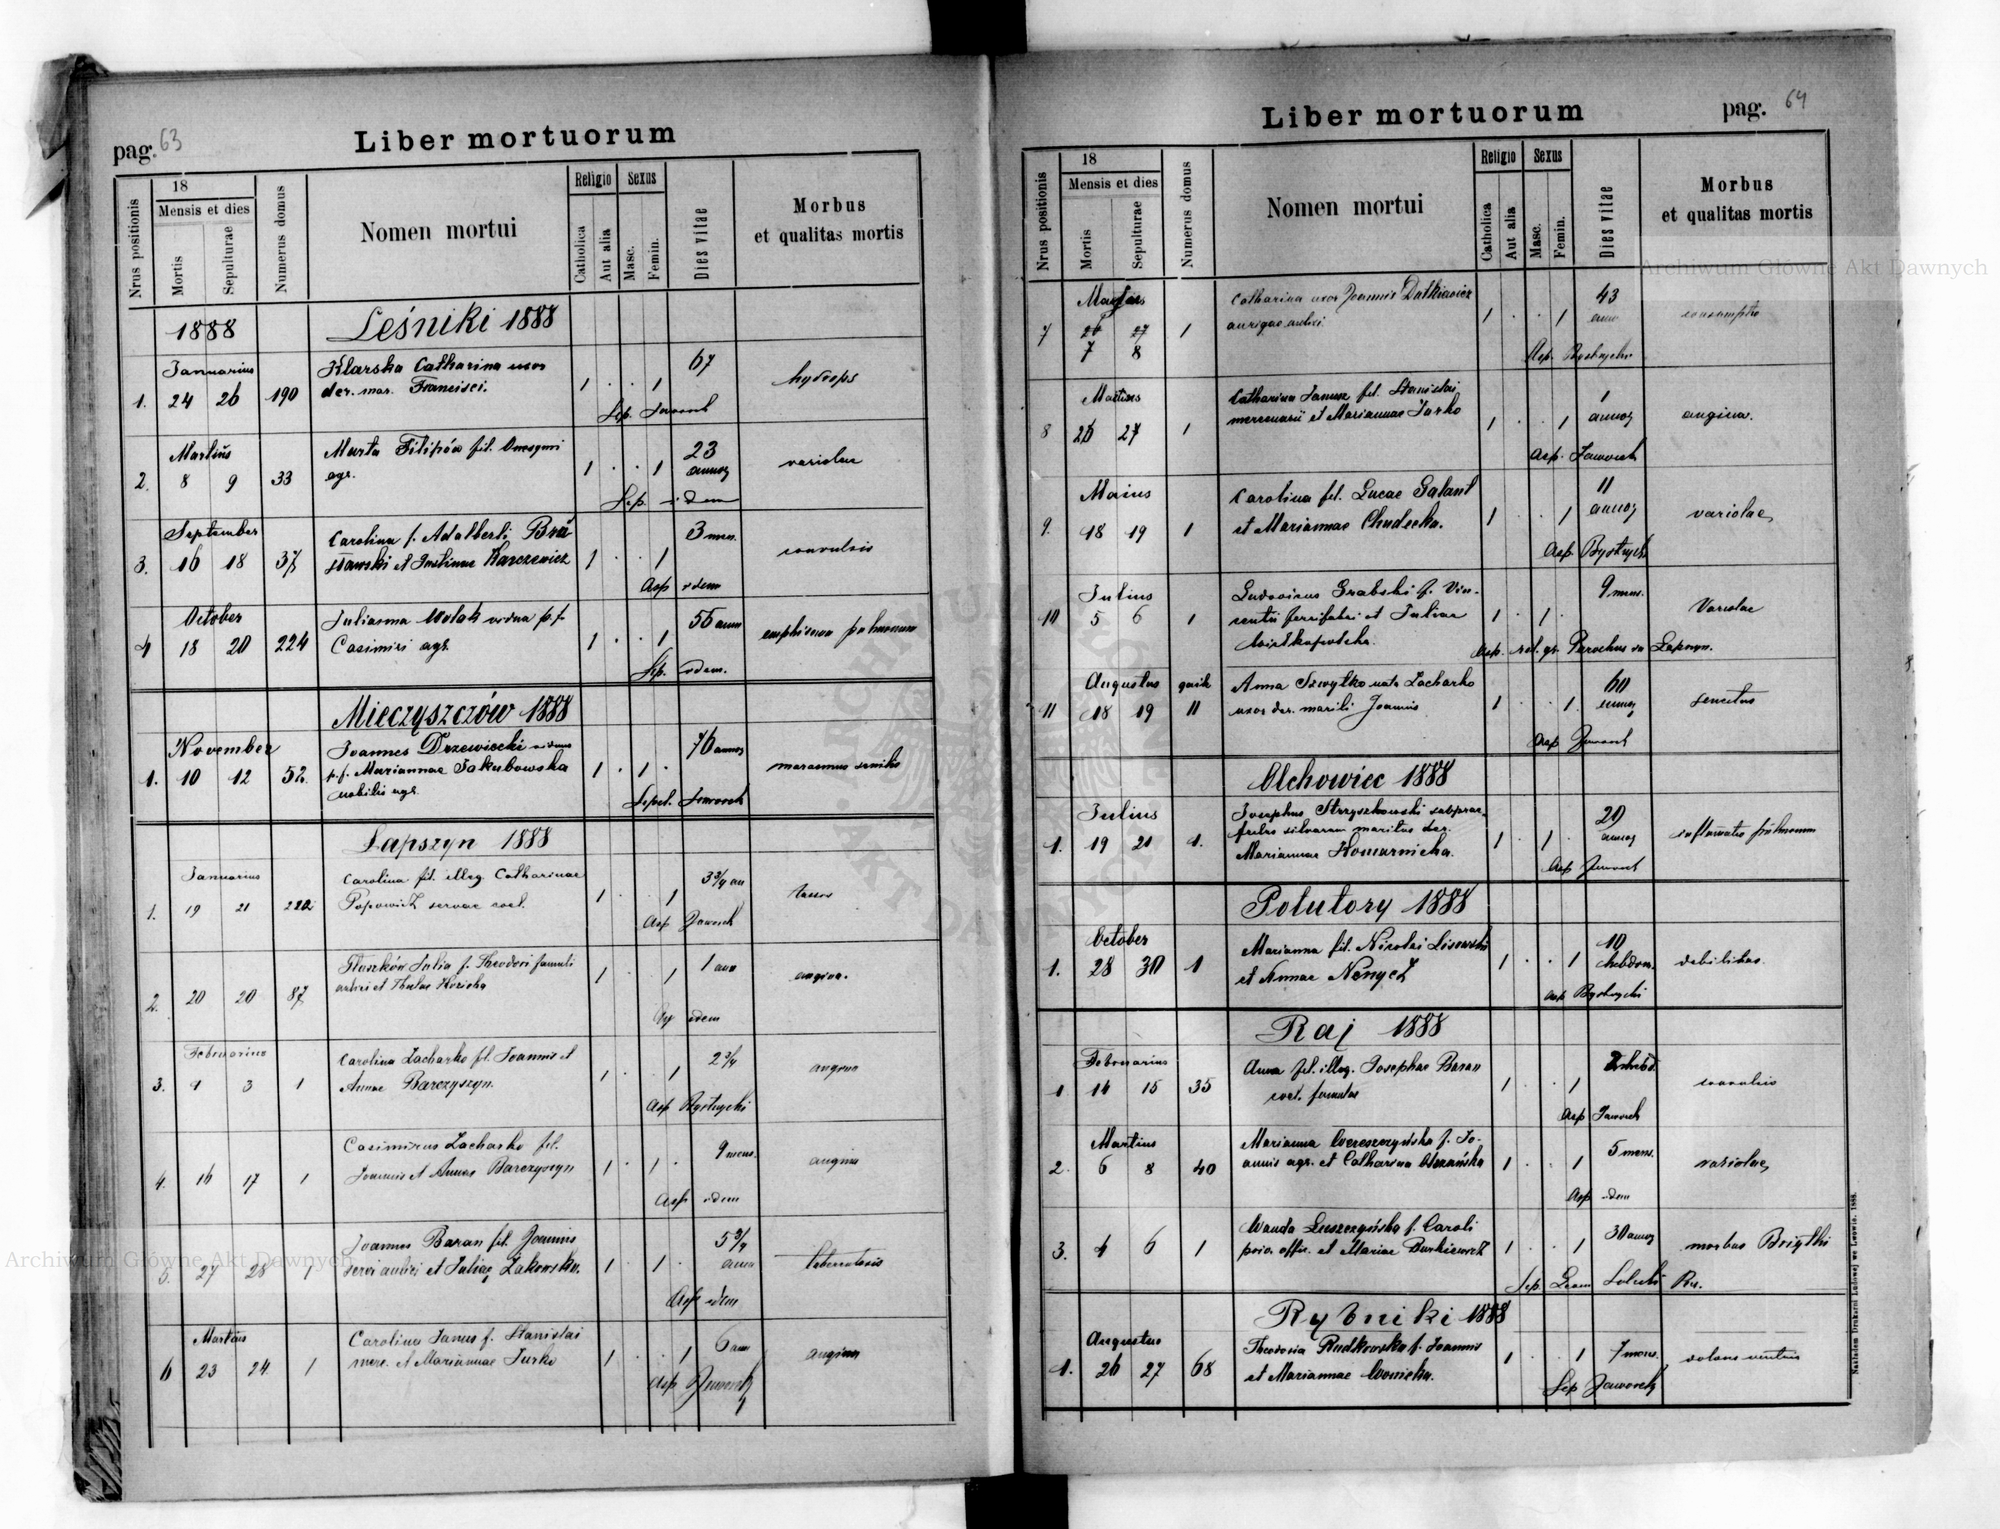 pag. 63
Liber mortuorum
Nrus positionis
18
Mensis et dies
Mortis
Sepulturae
Numerus domus
Nomen mortui
Religio
Catholica
Aut alia
Sexus
Masc.
Femin.
Dies vitae
Morbus
et qualitas mortis
1888
Leśniki 1888
Januarius
Klarska Catharina uxor
67
1. 24 26 190
der. mar. Francisci.
1 . . 1
hydrops
Sep. Jaworek
Martius
Marta Filipów fil. Onesymi
23
2. 8 9 33
agr.
1 . . 1
annor
variolae
Sep. idem
September
Carolina f. Adalberti
3 men.
3. 16 18 37
et Justinae Karczewicz
1 . . 1
convulsio
Asp idem
October
Julianna Wolak vidua p.f.
56 ann
4 18 20 224
Casimiri agr.
1 . . 1
emphisema pulmonum
Sep. idem.
Mieczyszczów 1888
November
Joannes Drzewiecki viduus
76 annor
1. 10 12 52.
p.f. Mariannae Jakubowska
1 . 1 .
marasmus senilis
nobilis agr.
Sepel. Jaworek
Lapszyn 1888
Januarius
Carolina fil. illeg Catharinae
3 3/4 an
1. 19 21 222
Popowicz servae coel.
1 . . 1
tussis
Asp Jaworek
Julia f. Theodori famuli
1 ann
2. 20 20 87
1 . 1
angina.
idem
Februarius
Carolina Zacharko fil. Joannis et
2 3/4
3. 1 3 1
Annae Barczyszyn.
1 . . 1
angina
Asp Bystrycki
Casimirus Zacharko fil.
9 mens.
4. 16 17 1
Joannis et Annae Barczyszyn
1 . 1 .
angina
Asp idem
Joannes Baran fil. Joannis
5 3/4
5. 27 28 1
servi aulici et Juliae Zakowska.
1 . 1 .
anna
tuberculosis
Asp idem
Martius
Carolina Janus f. Stanislai
6 ann
6 23 24 1
merc. et Mariannae Jurko
1 . . 1
angina
Asp Jaworek
Liber mortuorum
pag. 64
Nrus positionis
18
Mensis et dies
Mortis
Sepulturae
Numerus domus
Nomen mortui
Religio
Catholica
Aut alia
Sexus
Masc.
Femin.
Dies vitae
Morbus
et qualitas mortis
Catharina uxor Joannis Dutkiewicz
43
7 26 27 1
aurigae aulici
1 . . 1
anno
consumptio
7 8
Asp. Bystrycki
Martius
Catharina Janusz fil. Stanislai
1
8 26 27 1
mercenarii et Mariannae Jurko
1 . . 1
annor
angina.
Asp. Jaworek
Maius
Carolina fil. Lucae Galant
11
9. 18 19 1
et Mariannae Chudecka.
1 . . 1
annor
variolae
Asp Bystrycki
Julius
Ludovicus Grabski f. Vin-
9 mens.
10 5 6 1
centii ferrifabri et Juliae
1 . 1 .
Variolae
Asp. rit. gr. Parochus in Lapszyn.
Augustus gaik
Anna Szwytko nata Zacharko
60
11 18 19 11
uxor der. mariti Joannis
1 . . 1
annor
senectus
Asp Jaworek
Olchowiec 1888
Julius
Josephus Stryszkowski subprae-
20
1. 19 21 1.
fectus silvarum maritus der.
1 . 1 .
annor
inflamatio pulmonum
Mariannae Komarnicka.
Asp Jaworek
Potutory 1888
October
Marianna fil. Nicolai Lisowski
10
1. 28 30 1
et Annae Nenycz
1 . . 1
hebdom.
debilitas.
Asp Bystrycki
Raj 1888
Februarius
Anna fil. illeg. Josephae Baran
1 14 15 35
coel. famulae
1 . . 1
convulsio
Asp Jaworek
Martius
Marianna Wereszczyńska f. Jo-
5 mens.
2. 6 8 40
annis agr. et Catharina
1 . . 1
variolae
Asp idem
Wanda Leszczyńska f. Caroli
30 annor
3. 4 6 1
priv. offic. et Mariae Burkiewicz
1 . . 1
morbus Brigthi
Sep Leon Solecki Rr.
Rybniki 1888
Augustus
Theodosia Rudkowska f. Joannis
7 mens.
1. 26 27 68
et Mariannae Wonicka.
1 . . 1
dolores ventris
Sep Jaworek
Nakładem Drukarni Ludowej we Lwowie. 1888.
Archiwum Główne Akt Dawnych
Archiwum Główne Akt Dawnych
ARCHIWUM GŁÓWNE AKT DAWNYCH